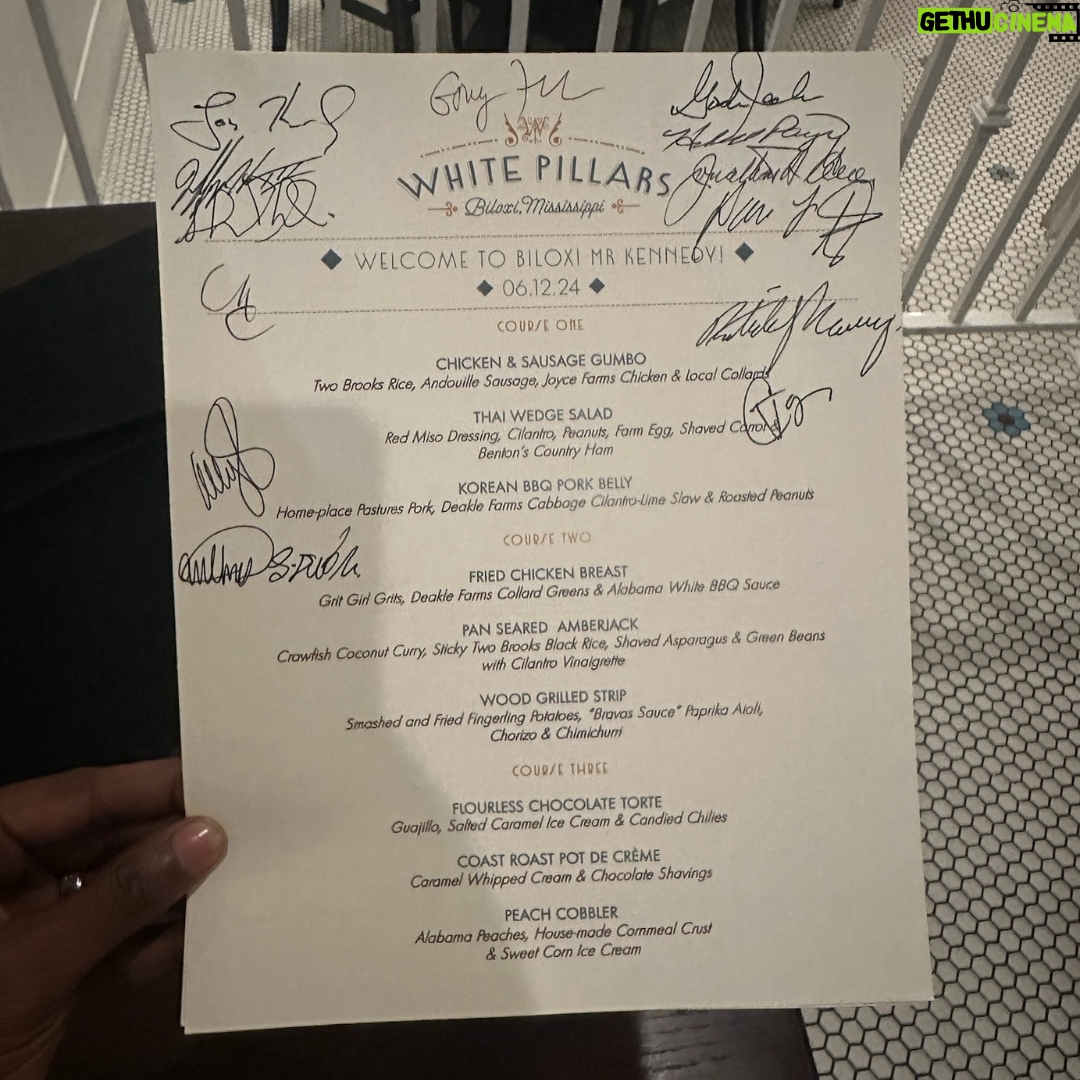 GETHUCINEMA
WHITE PILLARS
Biloxi, Mississippi
WELCOME TO BILOXI MR KENNEDY!
06.12.24
COURSE ONE
CHICKEN & SAUSAGE GUMBO
Two Brooks Rice, Andouille Sausage, Joyce Farms Chicken & Local Collards
THAI WEDGE SALAD
Red Miso Dressing, Cilantro, Peanuts, Farm Egg, Shaved Carrot &
Benton's Country Ham
KOREAN BBQ PORK BELLY
Home-place Pastures Pork, Deakle Farms Cabbage Cilantro-Lime Slaw & Roasted Peanuts
COURSE TWO
FRIED CHICKEN BREAST
Grit Girl Grits, Deakle Farms Collard Greens & Alabama White BBQ Sauce
PAN SEARED AMBERJACK
Crawfish Coconut Curry, Sticky Two Brooks Black Rice, Shaved Asparagus & Green Beans
with Cilantro Vinaigrette
WOOD GRILLED STRIP
Smashed and Fried Fingerling Potatoes, "Bravas Sauce" Paprika Aioli,
Chorizo & Chimichurri
COURSE THREE
FLOURLESS CHOCOLATE TORTE
Guajillo, Salted Caramel Ice Cream & Candied Chilies
COAST ROAST POT DE CRÈME
Caramel Whipped Cream & Chocolate Shavings
PEACH COBBLER
Alabama Peaches, House-made Cornmeal Crust
& Sweet Corn Ice Cream